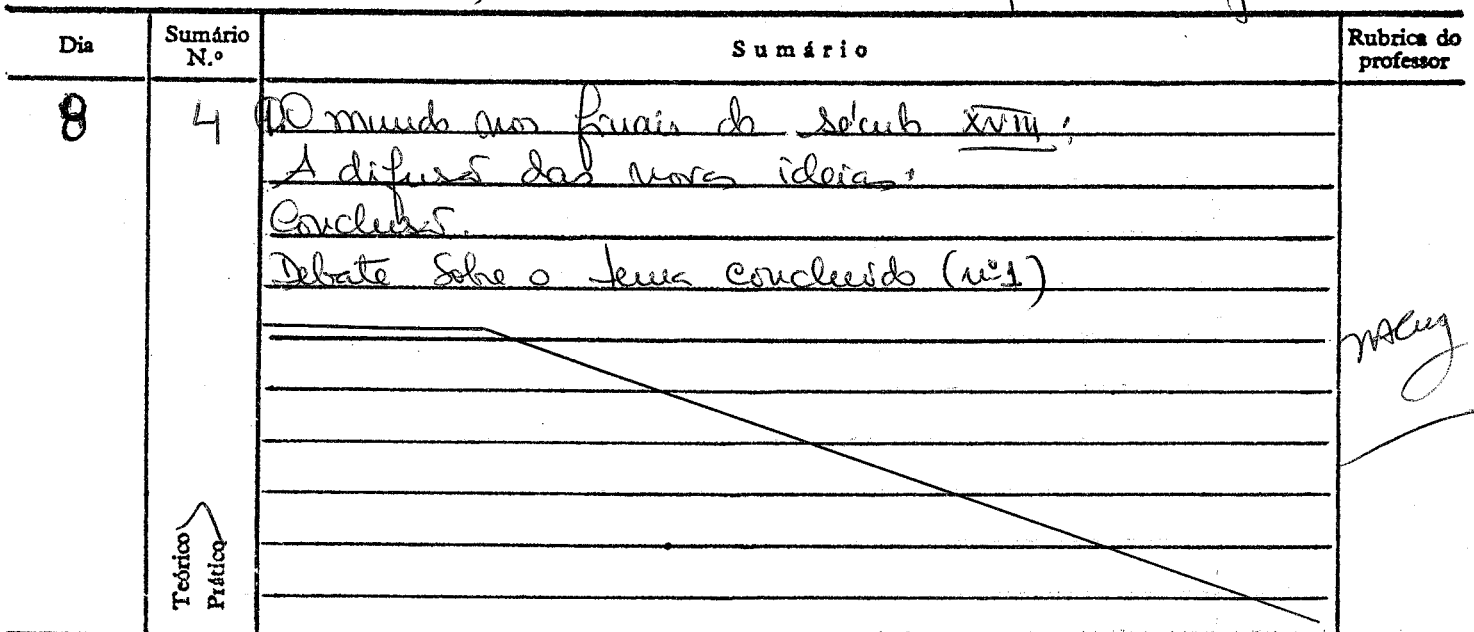 Dia Sumário N.º Sumário Rubrica do professor
8 4 1) O mundo nos finais do século XVIII:
A difusão das novas ideias.
Conclusão.
Debate sobre o tema concluído (nº1)
Teórico
Prático